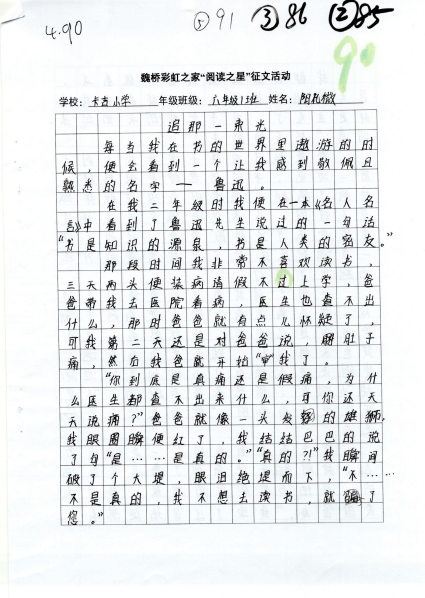 4.90 ⑤91 ③86 ②85
90
魏桥彩虹之家“阅读之星”征文活动
学校：卡吉小学 年级班级：六年级1班 姓名：阳礼微
追那一束光
每当我在书的世界里遨游的时
候，便会看到一个让我感到敬佩且
熟悉的名字——鲁迅。
在我二年级时我便在一本《名人名
言》中看到了鲁迅先生说过的一句话
“书是知识的源泉，书是人类的密友。”
那段时间我非常不喜欢读书，
三天两头便装病请假不过上学，爸
爸带我去医院看病，医生也查不出
什么，那时爸爸就有点儿怀疑了，
可我第二天还是对爸爸说，肚子
痛，然后我爸就开始“审”我了。
“你到底是真痛还是假痛，为什
么医生都查不出来什么，可你还天
天说痛？”爸爸就像一头发怒的雄狮，
我眼圈瞬便红了，我结结巴巴的说
了句“是……是真的。”“真的？！”我瞬间
破了个大堤，眼泪绝堤而下，“不……
不是真的，我不想去读书，就骗了
您。”